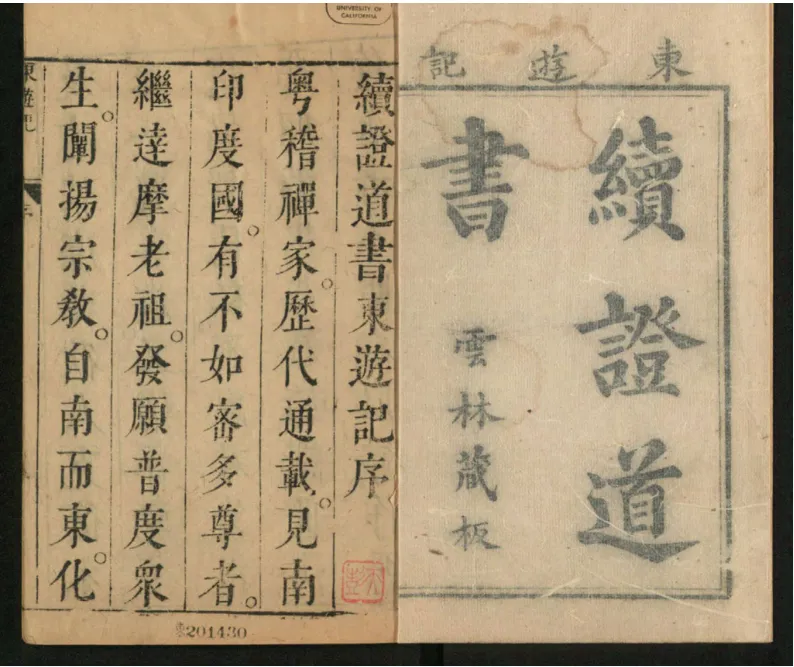 東遊記
續證道
書
雲林藏板
續證道書東遊記序
粵稽禪家。歷代通載。見南
印度國。有不如審多尊者。
繼達摩老祖。發願普度衆
生。闡揚宗敎。自南而東。化
東遊記
UNIVERSITY OF
CALIFORNIA
201430